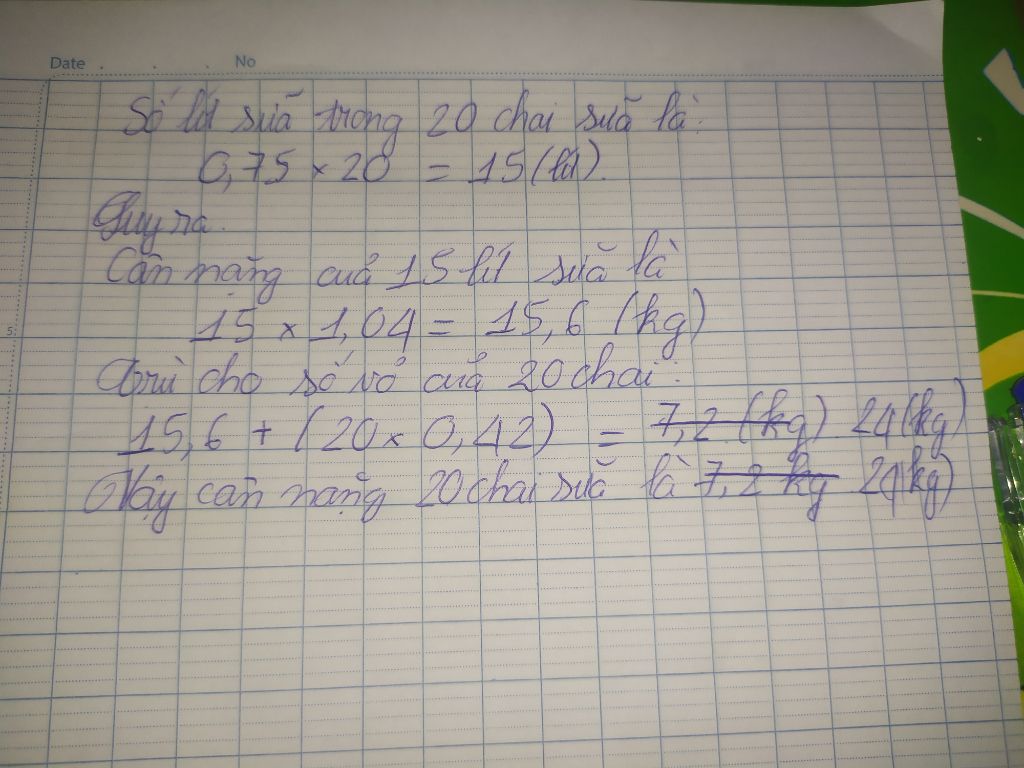 Date . . . No
Số lít sữa trong 20 chai sữa là:
0,75 × 20 = 15 (lít).
Quy ra.
Cân nặng cuả 15 lít sữa là
15 × 1,04 = 15,6 (kg)
Trừ cho số vỏ cuả 20 chai:
15,6 + (20 × 0,42) = 7,2 (kg) 24 (kg)
Vậy cân nặng 20 chai sữa là 7,2 kg 24 (kg)
5